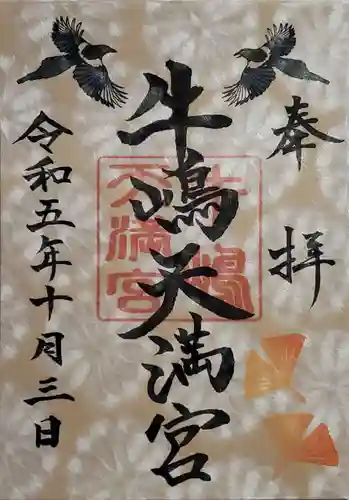 奉拝
牛嶋天満宮
牛嶋天満宮
令和五年十月三日